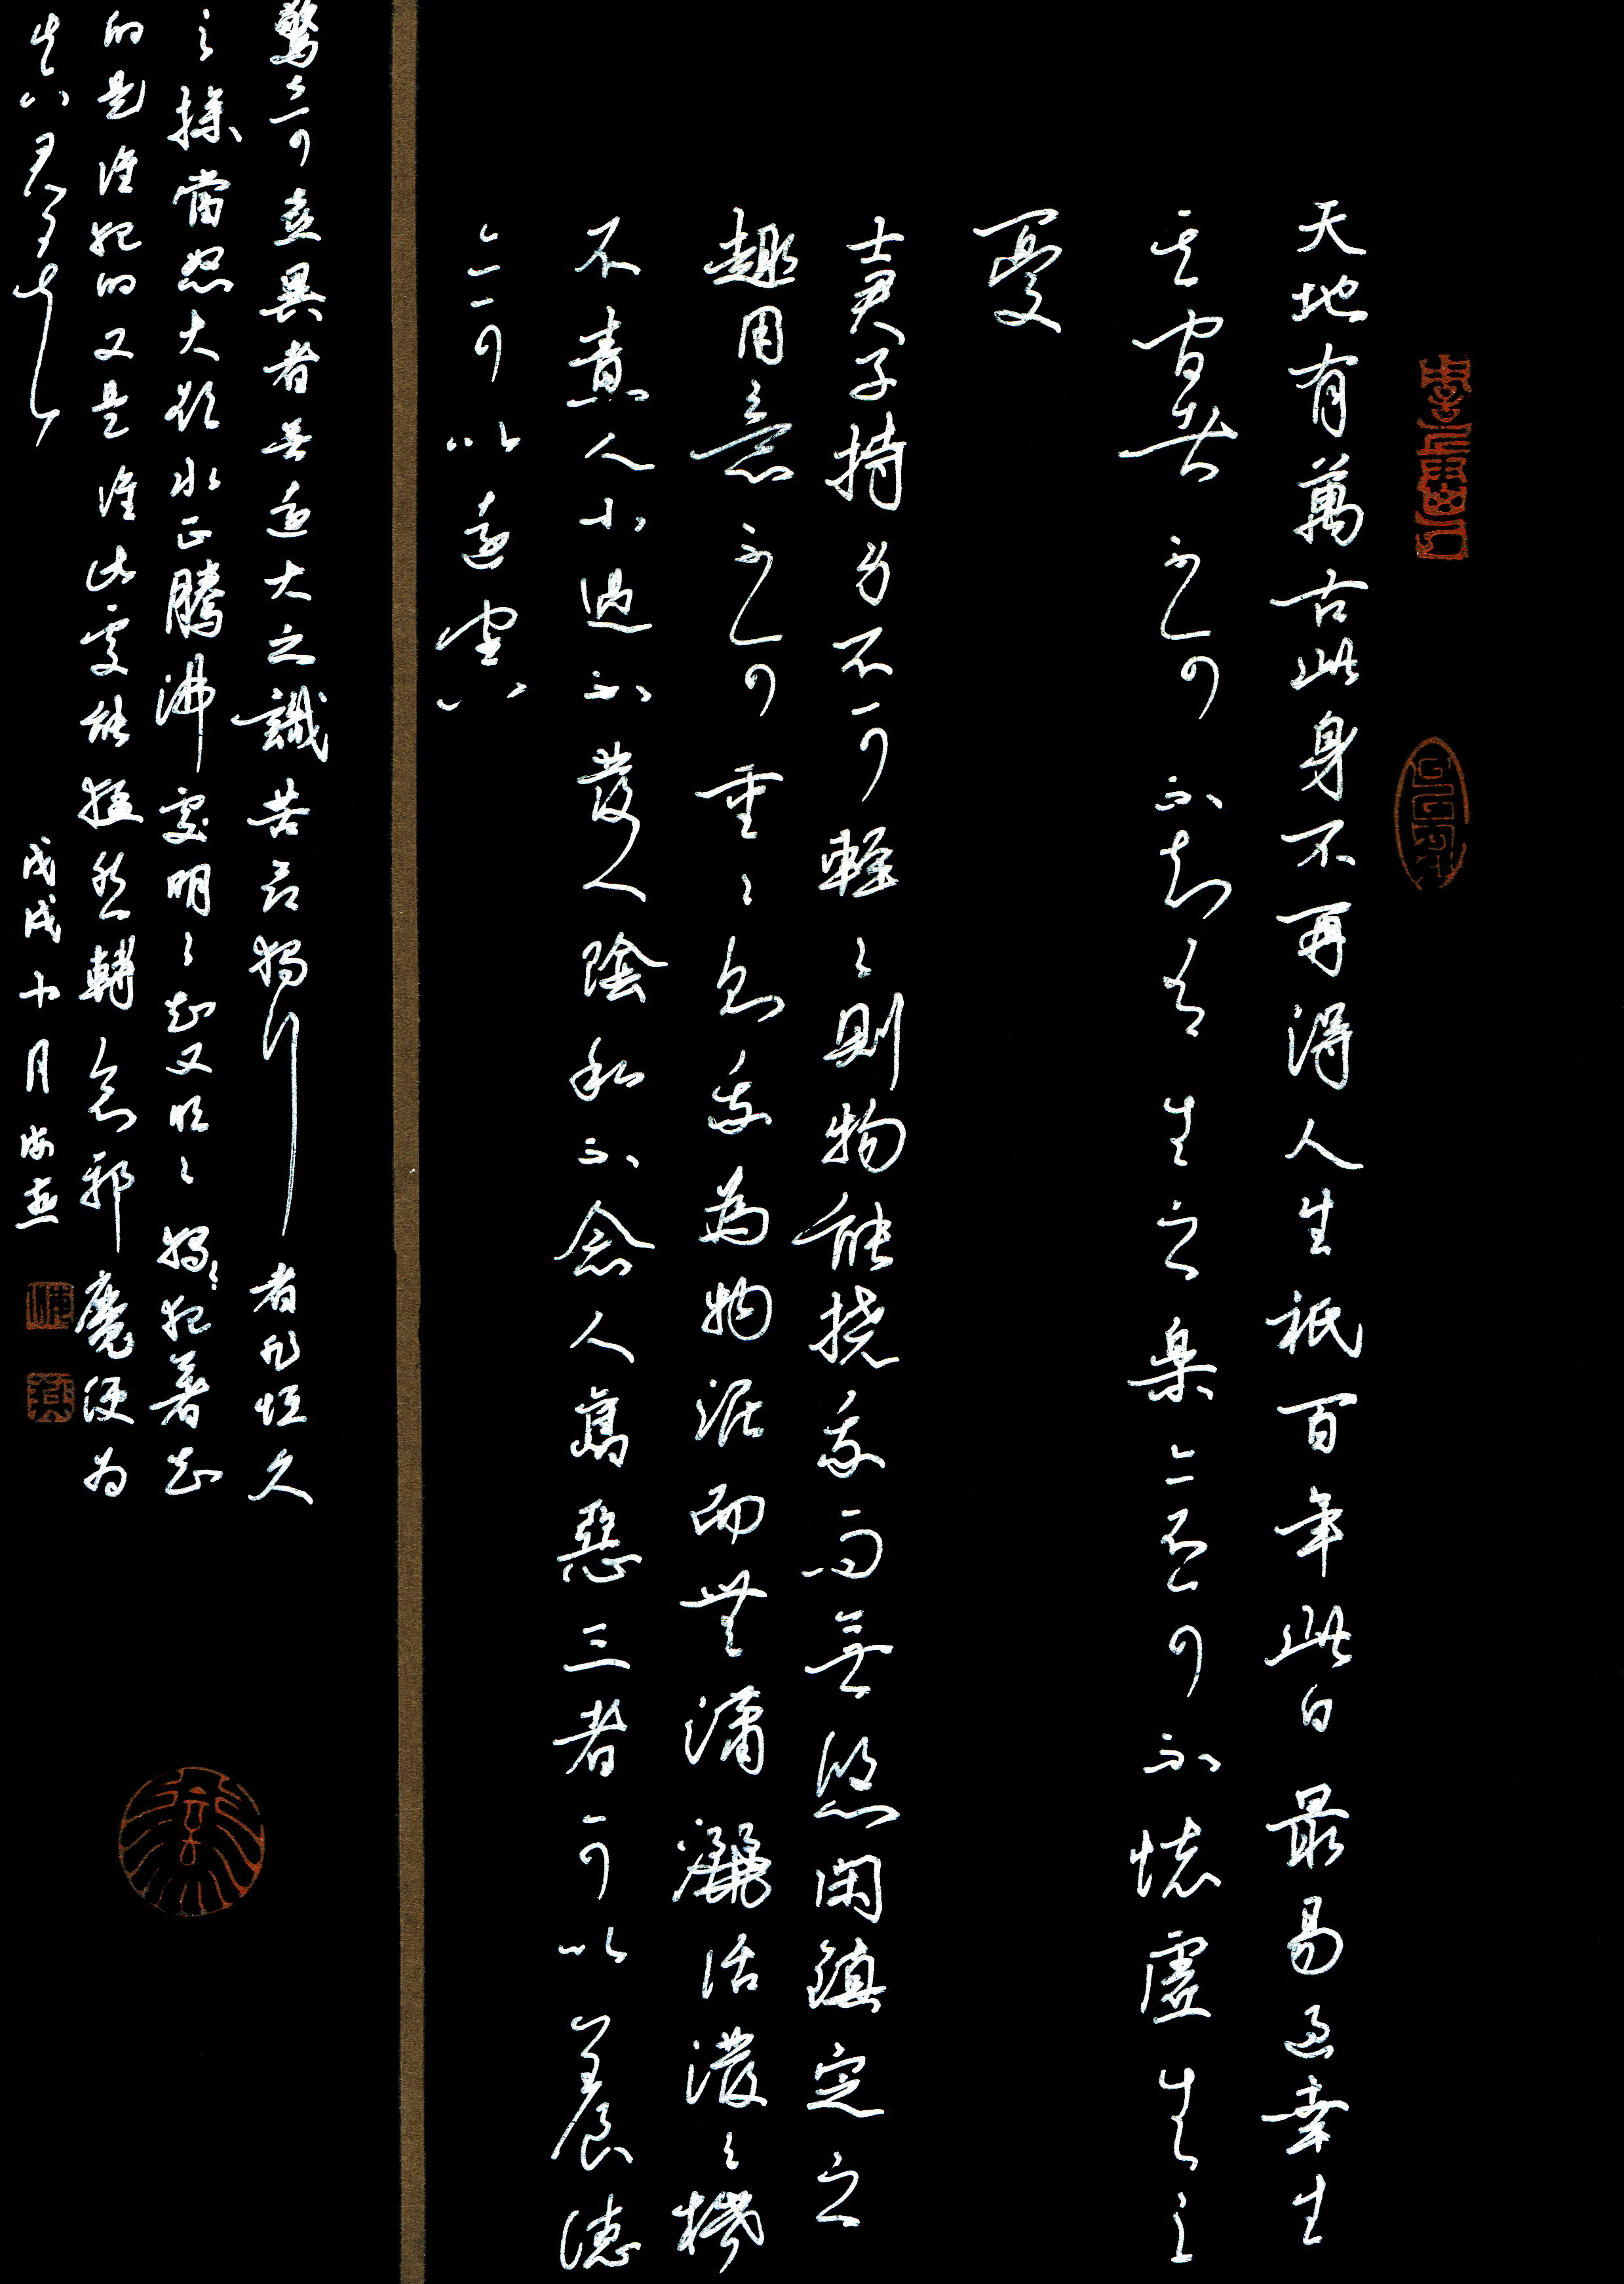 天地有萬古此身不再得人生祇百年此日最易過幸生
其間者不可不知有生之樂亦不可不懷虛生之
憂
士君子持身不可輕輕則物能撓我而無悠閑鎮定之
趣用意不可重重則我為物泥而無瀟灑活潑之機
不責人小過不發人陰私不念人舊惡三者可以養德
亦可以遠害
驚奇立異者無遠大之識苦節獨行者非恒久
之操當怒火欲水正騰沸處明明知又明明犯著知
的是誰犯的又是誰此處能猛然轉念邪魔便為
真君矣
戊戌十月海燕